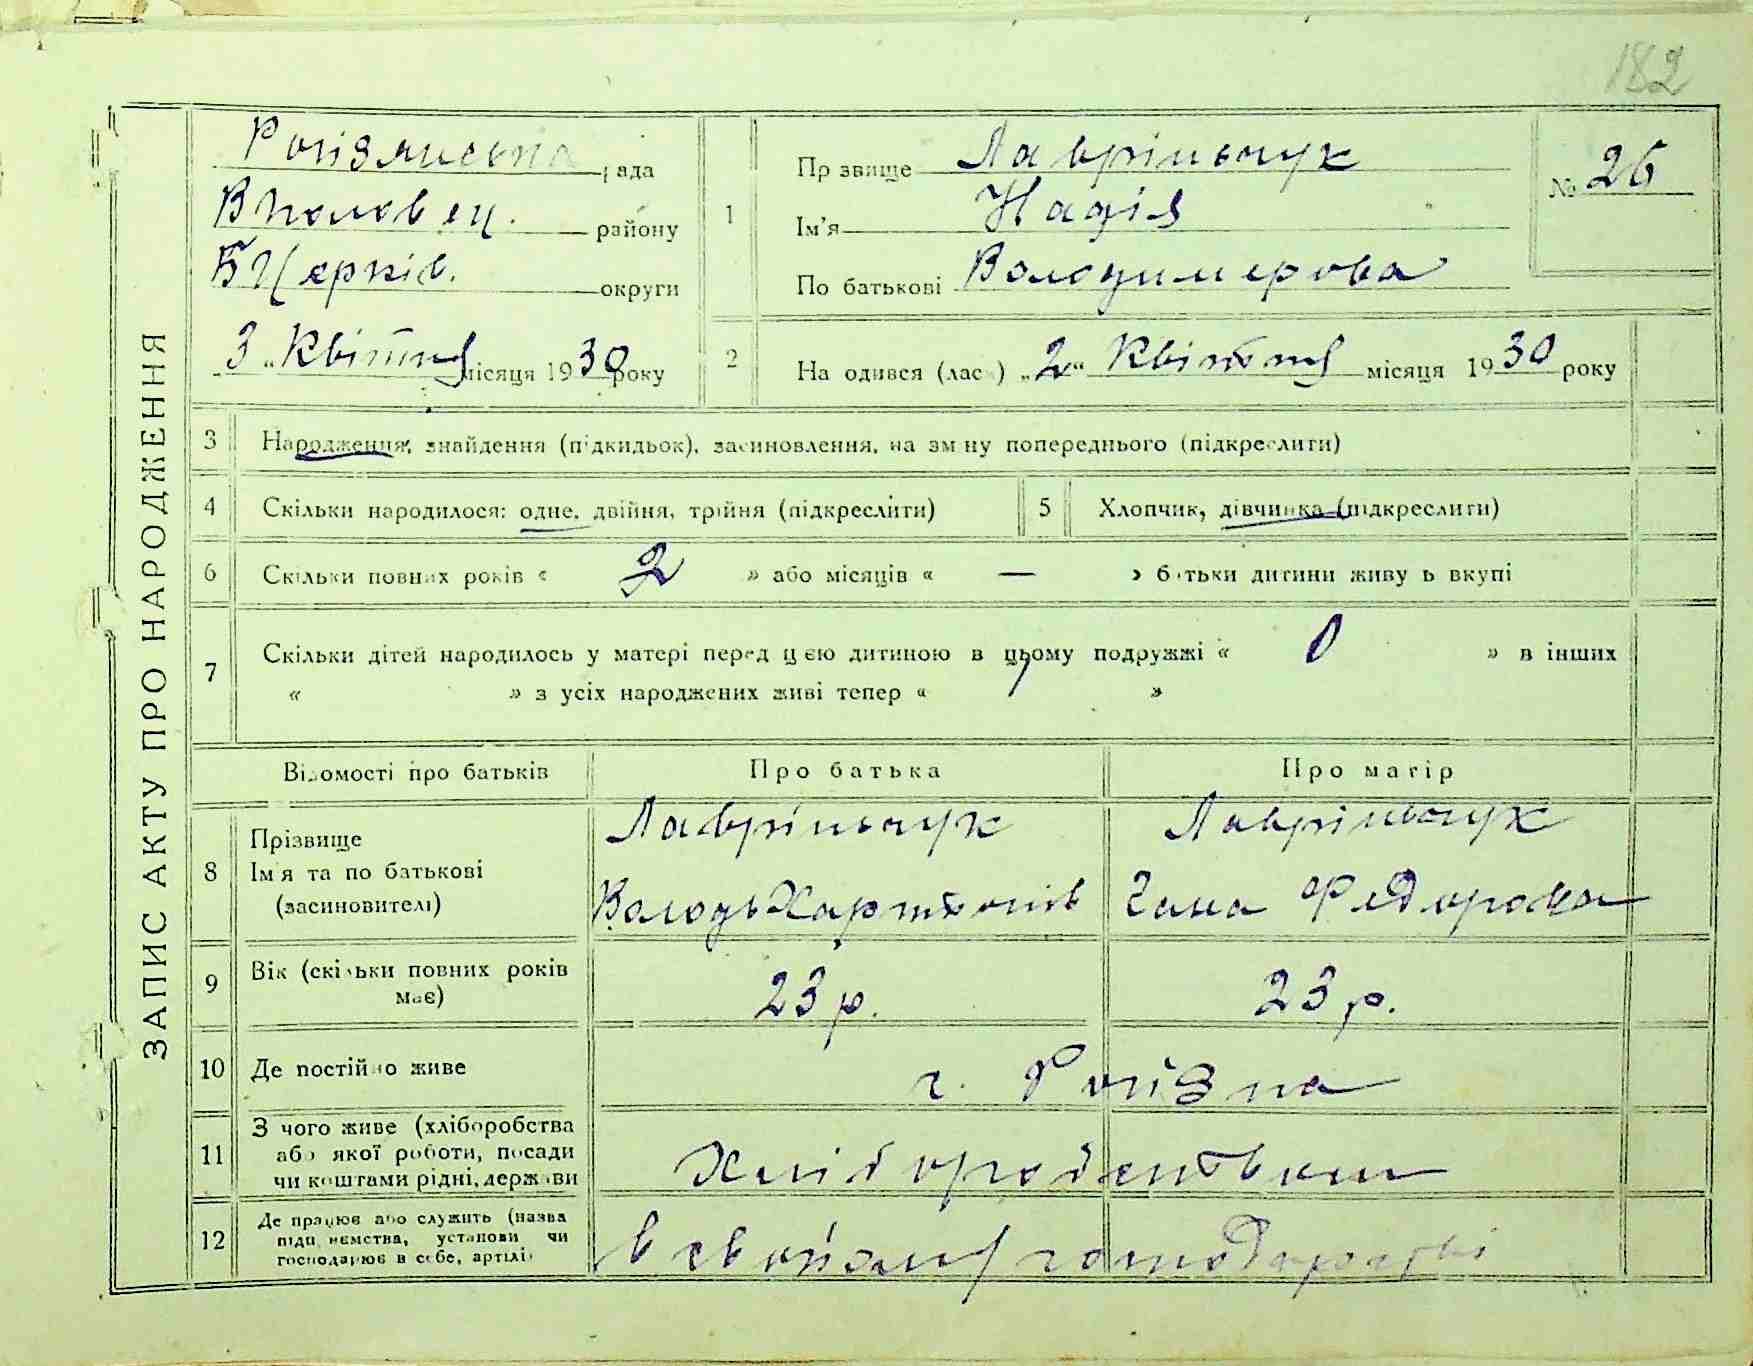 182
ЗАПИС АКТУ ПРО НАРОДЖЕННЯ
Рогізянська рада
В Половец. району
Б Церків. округи
3 „ Квітня місяця 1930 року
1
Прзвище Лаврінчук
Ім'я Надія
По батькові Володимерова
№ 26
2
На одився (лас ) „2“ Квітня місяця 1930 року
3 Народження, знайдення (підкидьок), засиновлення, на зм ну попереднього (підкреслити)
4 Скільки народилося: одне, двійня, трійня (підкреслити)
5 Хлопчик, дівчинка (підкреслити)
6 Скільки повних років « 2 » або місяців « — » батьки дитини живу ь вкупі
7 Скільки дітей народилось у матері перед цією дитиною в цьому подружжі « 0 » в інших
« » з усіх народжених живі тепер « »
Відомості про батьків Про батька Про матір
8 Прізвище
Ім'я та по батькові
(засиновителі)
Лаврінчук
Володь Харитонів
Лаврінчук
Гана Федорова
9 Вік (скільки повних років має)
23 р. 23 р.
10 Де постійно живе
с. Рогізна
11 З чого живе (хліборобства
або якої роботи, посади
чи коштами рідні, держави
Хліборобством
12 Де працює або служить (назва
підприємства, установи чи
господарює в себе, артілі)
в свойому господарстві